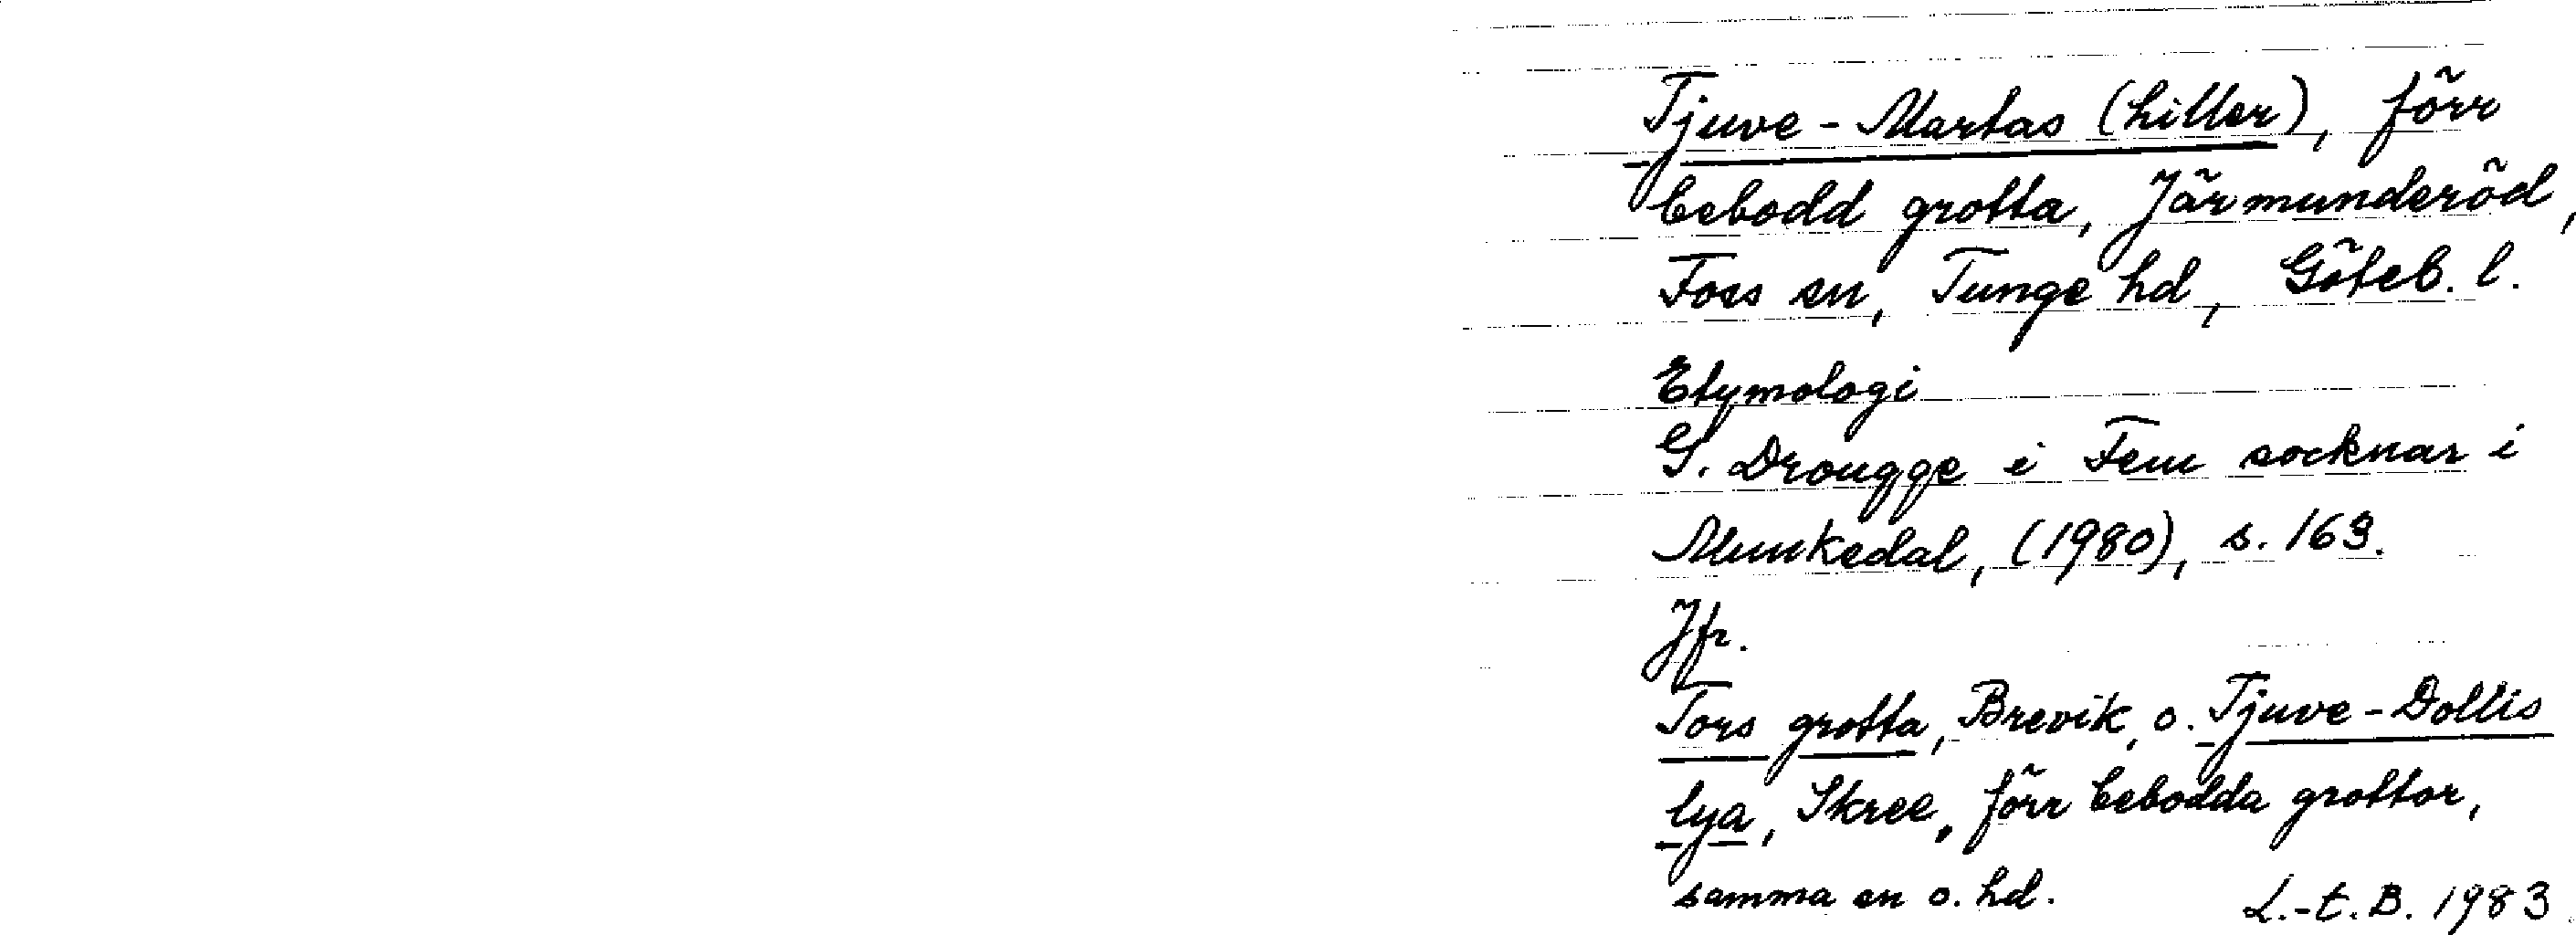 Tjuve-Martas (hiller), förr
bebodd grotta, Järmunderöd,
Foss sn, Tunge hd, Göteb. l.
Etymologi
G. Drougge i Fem socknar i
Munkedal, (1980), s. 169.
Jfr.
Tors grotta, Brevik, o. Tjuve-Dollis
lya, Skree, förr bebodda grottor,
samma sn o. hd. L.-E. B. 1983